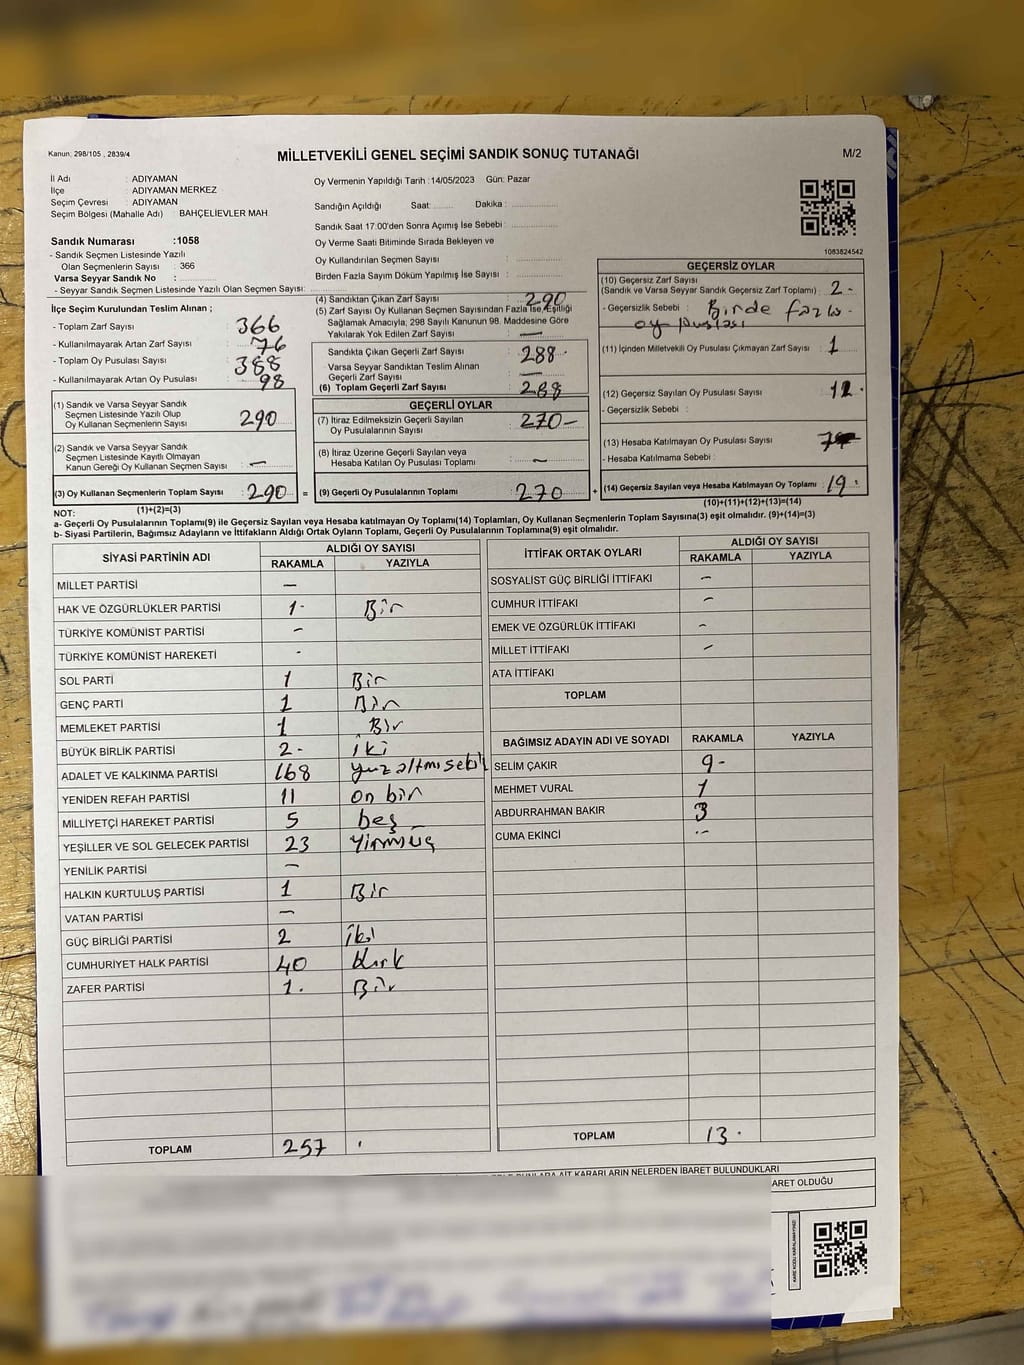 Kanun, 298/105 , 2839/4
MİLLETVEKİLİ GENEL SEÇİMİ SANDIK SONUÇ TUTANAĞI
M/2
İl Adı : ADIYAMAN
İlçe : ADIYAMAN MERKEZ
Seçim Çevresi : ADIYAMAN
Seçim Bölgesi (Mahalle Adı) : BAHÇELİEVLER MAH
Sandık Numarası :1058
- Sandık Seçmen Listesinde Yazılı
Olan Seçmenlerin Sayısı : 366
Varsa Seyyar Sandık No :
- Seyyar Sandık Seçmen Listesinde Yazılı Olan Seçmen Sayısı:
Oy Vermenin Yapıldığı Tarih :14/05/2023 Gün: Pazar
Sandığın Açıldığı Saat: Dakika :
Sandık Saat 17:00'den Sonra Açımış İse Sebebi :
Oy Verme Saati Bitiminde Sırada Bekleyen ve
Oy Kullandırılan Seçmen Sayısı :
Birden Fazla Sayım Döküm Yapılmış İse Sayısı :
1083824542
İlçe Seçim Kurulundan Teslim Alınan ;
- Toplam Zarf Sayısı : 366
- Kullanılmayarak Artan Zarf Sayısı : 76
- Toplam Oy Pusulası Sayısı : 388
- Kullanılmayarak Artan Oy Pusulası : 98
(1) Sandık ve Varsa Seyyar Sandık
Seçmen Listesinde Yazılı Olup
Oy Kullanan Seçmenlerin Sayısı : 290
(2) Sandık ve Varsa Seyyar Sandık
Seçmen Listesinde Kayıtlı Olmayan
Kanun Gereği Oy Kullanan Seçmen Sayısı : —
(3) Oy Kullanan Seçmenlerin Toplam Sayısı : 290 =
(1)+(2)=(3)
(4) Sandıktan Çıkan Zarf Sayısı : 290
(5) Zarf Sayısı Oy Kullanan Seçmen Sayısından Fazla İse,Eşitliği
Sağlamak Amacıyla, 298 Sayılı Kanunun 98. Maddesine Göre
Yakılarak Yok Edilen Zarf Sayısı : —
Sandıkta Çıkan Geçerli Zarf Sayısı : 288
Varsa Seyyar Sandıktan Teslim Alınan
Geçerli Zarf Sayısı : —
(6) Toplam Geçerli Zarf Sayısı : 288
GEÇERLİ OYLAR
(7) İtiraz Edilmeksizin Geçerli Sayılan
Oy Pusulalarının Sayısı : 270-
(8) İtiraz Üzerine Geçerli Sayılan veya
Hesaba Katılan Oy Pusulası Toplamı : —
(9) Geçerli Oy Pusulalarının Toplamı : 270 +
GEÇERSİZ OYLAR
(10) Geçersiz Zarf Sayısı
(Sandık ve Varsa Seyyar Sandık Geçersiz Zarf Toplamı) : 2-
- Geçersizlik Sebebi : Birden fazla
oy pusulası
(11) İçinden Milletvekili Oy Pusulası Çıkmayan Zarf Sayısı : 1
(12) Geçersiz Sayılan Oy Pusulası Sayısı : 12
- Geçersizlik Sebebi :
(13) Hesaba Katılmayan Oy Pusulası Sayısı :
- Hesaba Katılmama Sebebi :
(14) Geçersiz Sayılan veya Hesaba Katılmayan Oy Toplamı : 19
(10)+(11)+(12)+(13)=(14)
NOT:
a- Geçerli Oy Pusulalarının Toplamı(9) ile Geçersiz Sayılan veya Hesaba katılmayan Oy Toplamı(14) Toplamları, Oy Kullanan Seçmenlerin Toplam Sayısına(3) eşit olmalıdır. (9)+(14)=(3)
b- Siyasi Partilerin, Bağımsız Adayların ve İttifakların Aldığı Ortak Oyların Toplamı, Geçerli Oy Pusulalarının Toplamına(9) eşit olmalıdır.
SİYASİ PARTİNİN ADI ALDIĞI OY SAYISI
RAKAMLA YAZIYLA
MİLLET PARTİSİ —
HAK VE ÖZGÜRLÜKLER PARTİSİ 1- Bir
TÜRKİYE KOMÜNİST PARTİSİ -
TÜRKİYE KOMÜNİST HAREKETİ -
SOL PARTİ 1 Bir
GENÇ PARTİ 1 Bir
MEMLEKET PARTİSİ 1 Bir
BÜYÜK BİRLİK PARTİSİ 2- iki
ADALET VE KALKINMA PARTİSİ 168 yüz altmışsekiz
YENİDEN REFAH PARTİSİ 11 on bir
MİLLİYETÇİ HAREKET PARTİSİ 5 beş
YEŞİLLER VE SOL GELECEK PARTİSİ 23 Yirmiüç
YENİLİK PARTİSİ —
HALKIN KURTULUŞ PARTİSİ 1 Bir
VATAN PARTİSİ —
GÜÇ BİRLİĞİ PARTİSİ 2 iki
CUMHURİYET HALK PARTİSİ 40 kırk
ZAFER PARTİSİ 1. Bir
TOPLAM 257
İTTİFAK ORTAK OYLARI ALDIĞI OY SAYISI
RAKAMLA YAZIYLA
SOSYALİST GÜÇ BİRLİĞİ İTTİFAKI -
CUMHUR İTTİFAKI -
EMEK VE ÖZGÜRLÜK İTTİFAKI -
MİLLET İTTİFAKI -
ATA İTTİFAKI
TOPLAM
BAĞIMSIZ ADAYIN ADI VE SOYADI ALDIĞI OY SAYISI
RAKAMLA YAZIYLA
SELİM ÇAKIR 9-
MEHMET VURAL 1
ABDURRAHMAN BAKIR 3
CUMA EKİNCİ -
TOPLAM 13
BUNLARA AİT KARARLARIN NELERDEN İBARET BULUNDUKLARI
ARET OLDUĞU